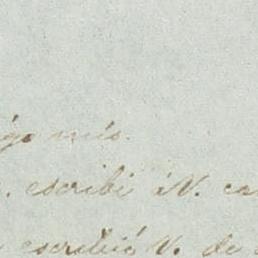 go mío.
. escribí á V. ca
escribió V. de